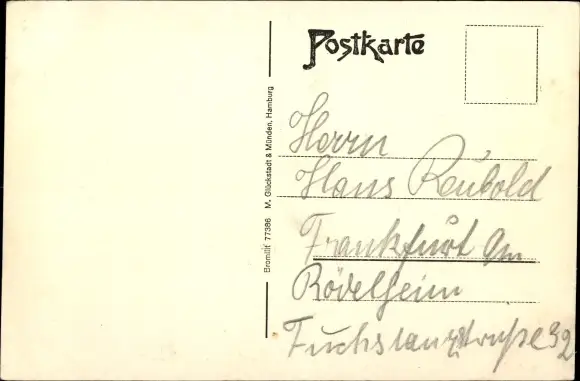 Postkarte
Bromitif 77386 M. Glückstadt & Münden, Hamburg
Herrn
Hans Reubold
Frankfurt Am
Rödelheim
32